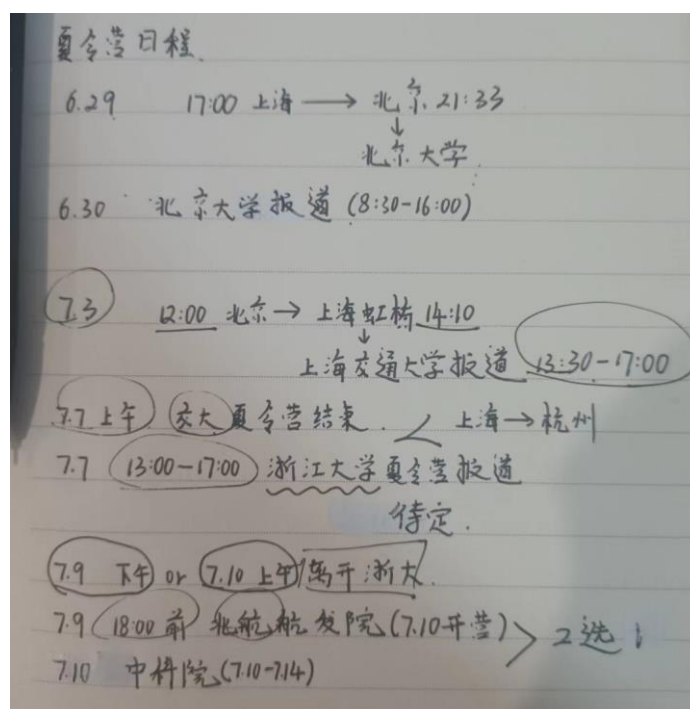 夏令营日程.
6.29 17:00 上海 → 北京 21:33
↓
北京大学.
6.30 北京大学报道 (8:30-16:00)
7.3 12:00 北京→ 上海虹桥 14:10
↓
上海交通大学报道 13:30-17:00
7.7 上午 交大夏令营结束. < 上海→杭州
7.7 13:00-17:00 浙江大学夏令营报道
待定.
7.9 下午 or 7.10 上午 离开浙大.
7.9 18:00 前 北航航发院 (7.10开营) > 2选1
7.10 中科院 (7.10-7.14)